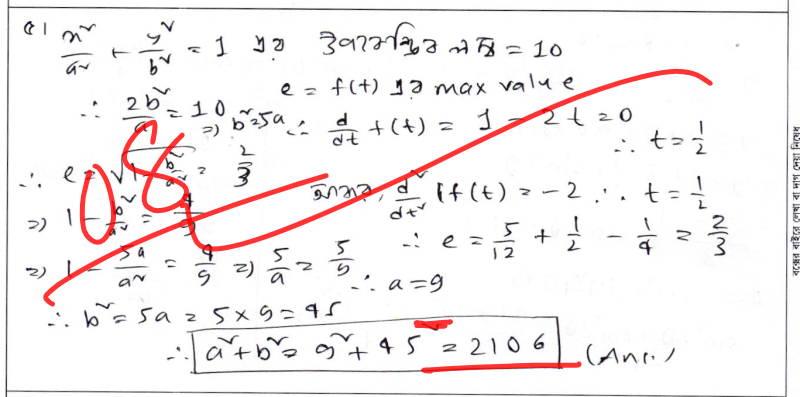 ৫। x²/a² + y²/b² = 1 এর উপকেন্দ্রিক লম্ব = 10
e = f(t) এর max value
∴ 2b²/a = 10 ⇒ b² = 5a ∴ d/dt f(t) = 1 - 2t = 0
∴ t = 1/2
∴ e = √(1 - b²/a²) = 2/3
আবার, d²/dt² (f(t)) = -2 ∴ t = 1/2
⇒ 1 - b²/a² = 4/9
∴ e = 5/12 + 1/2 - 1/4 = 2/3
⇒ 1 - 5a/a² = 4/9 ⇒ 5/a = 5/9
∴ a = 9
∴ b² = 5a = 5 × 9 = 45
∴ a² + b² = 9² + 45² = 2106 (Ans.)
08
বক্সের বাইরে লেখা বা দাগ দেয়া নিষেধ